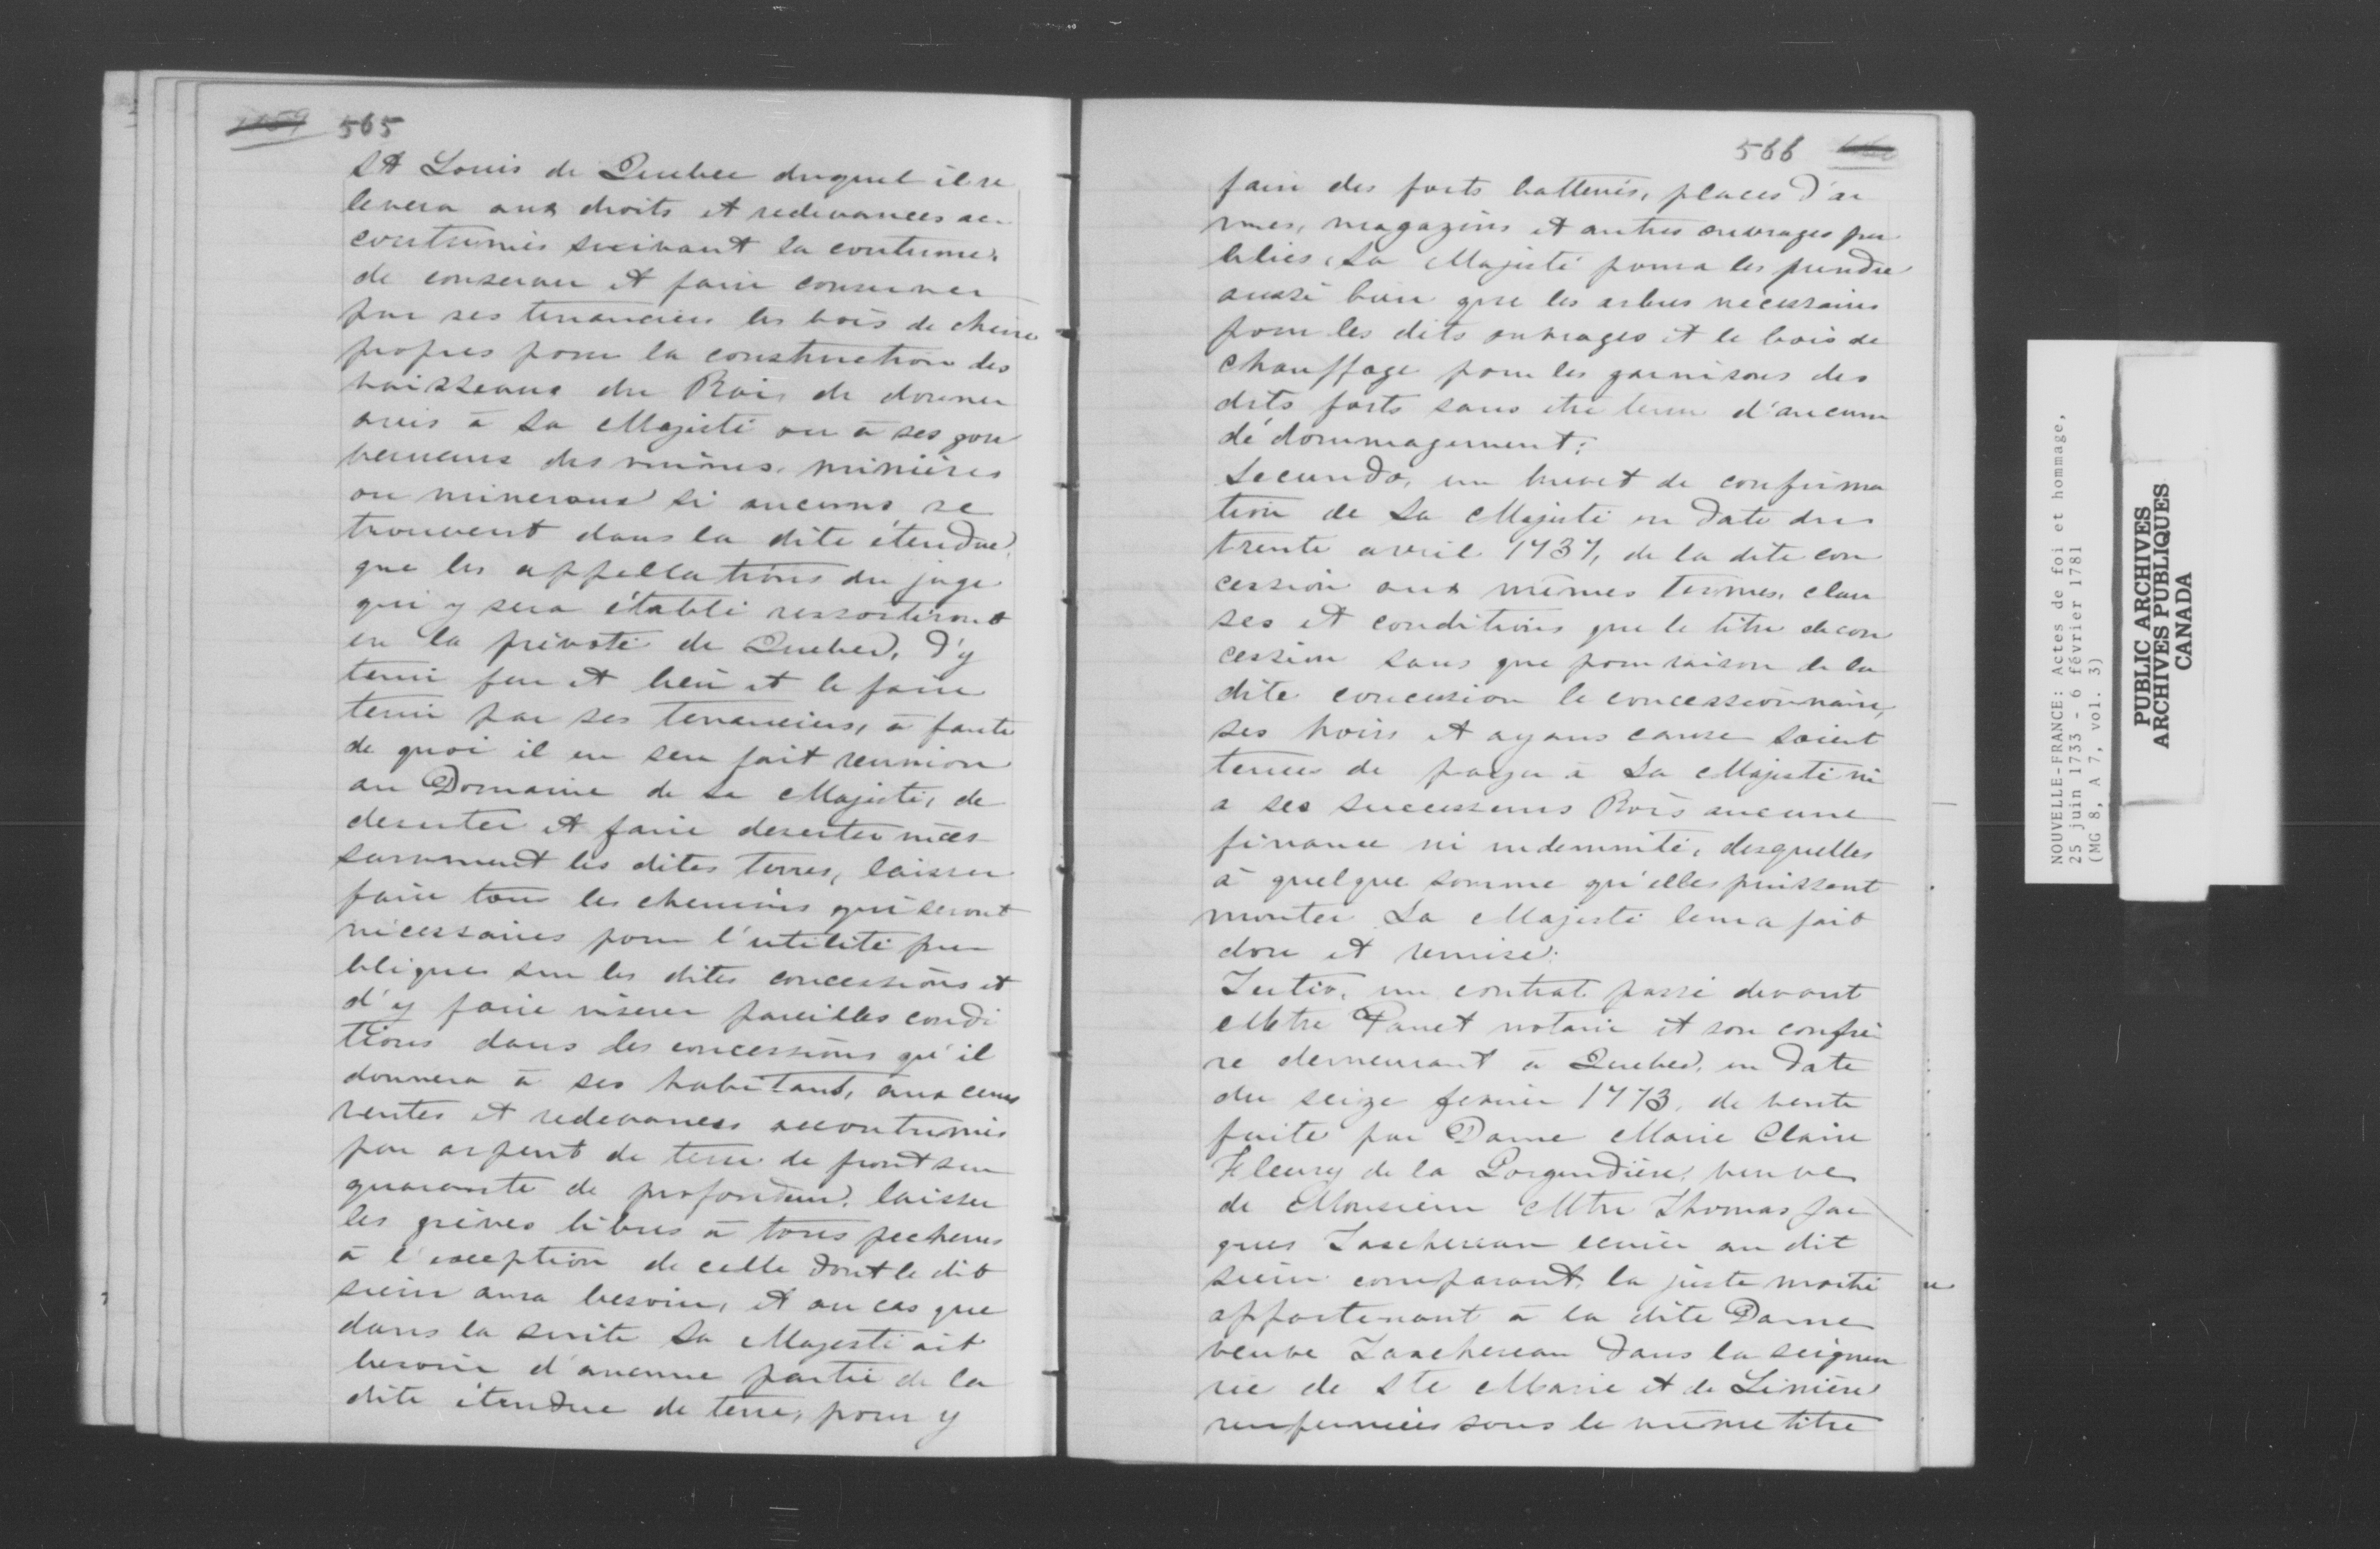 565
St Louis de Quebec duquel il re
levera aux droits et redevances ac
coutumés suivant la coutume,
de conserver et faire conserver
par ses tenanciers les bois de chene
propres pour la construction des
vaisseaux du Roi, de donner
avis à Sa Majesté ou à ses gou
verneurs des mines, minières
ou mineraux si aucuns se
trouvent dans la dite étendue,
que les appellations du juge
qui y sera établi ressortiront
en la prévoté de Quebec, d'y
tenir feu et lieu et le faire
tenir par ses tenanciers, à faute
de quoi il en sera fait reunion
au Domaine de Sa Majesté, de
deserter et faire deserter inces
samment les dites terres, laisser
faire tous les chemins qui seront
nécessaires pour l'utilité pu
blique sur les dites concessions et
d'y faire inserer pareilles condi
tions dans les concessions qu'il
donnera à ses habitants, aux cens
rentes et redevances accoutumés
par arpent de terre de front sur
quarante de profondeur, laisser
les grèves libres à tous pecheurs
à l'exception de celle dont le dit
sieur aura besoin, et au cas que
dans la suite Sa Majesté ait
besoin d'aucune partie de la
dite étendue de terre, pour y
566
faire des forts batteries, places d'ar
mes, magazins et autres ouvrages pu
blics, Sa Majesté pourra les prendre
aussi bien que les arbres nécessaires
pour les dits ouvrages et le bois de
chauffage pour les garnisons des
dits forts sans etre tenu d'aucun
dédommagement;
Secundo, un brevet de confirma
tion de Sa Majesté en date du
trente avril 1737, de la dite con
cession aux mêmes termes, clau
ses et conditions que le titre de con
cession sans que pour raison de la
dite concession le concessionnaire,
ses hoirs et ayans cause soient
tenus de payer à Sa Majesté ni
a ses successeurs Rois aucune
finance ni indemnité, desquelles
à quelque somme qu'elles puissent
monter Sa Majesté leur a fait
don et remise.
Tertio, un contrat passé devant
Mtre Panet notaire et son confrè
re demeurant à Quebec, en date
du seize fevrier 1773, de vente
faite par Dame Marie Claire
Fleury de la Gorgendière, veuve
de Monsieur Mtre Thomas Jac
ques Taschereau ecuier au dit
sieur comparant, la juste moitié
appartenant à la dite Dame
veuve Taschereau dans la seigneu
rie de Ste Marie et de Linière
renfermées sous le même titre
NOUVELLE-FRANCE: Actes de foi et hommage,
25 juin 1733 - 6 février 1781
(MG 8, A 7, vol. 3)
PUBLIC ARCHIVES
ARCHIVES PUBLIQUES
CANADA